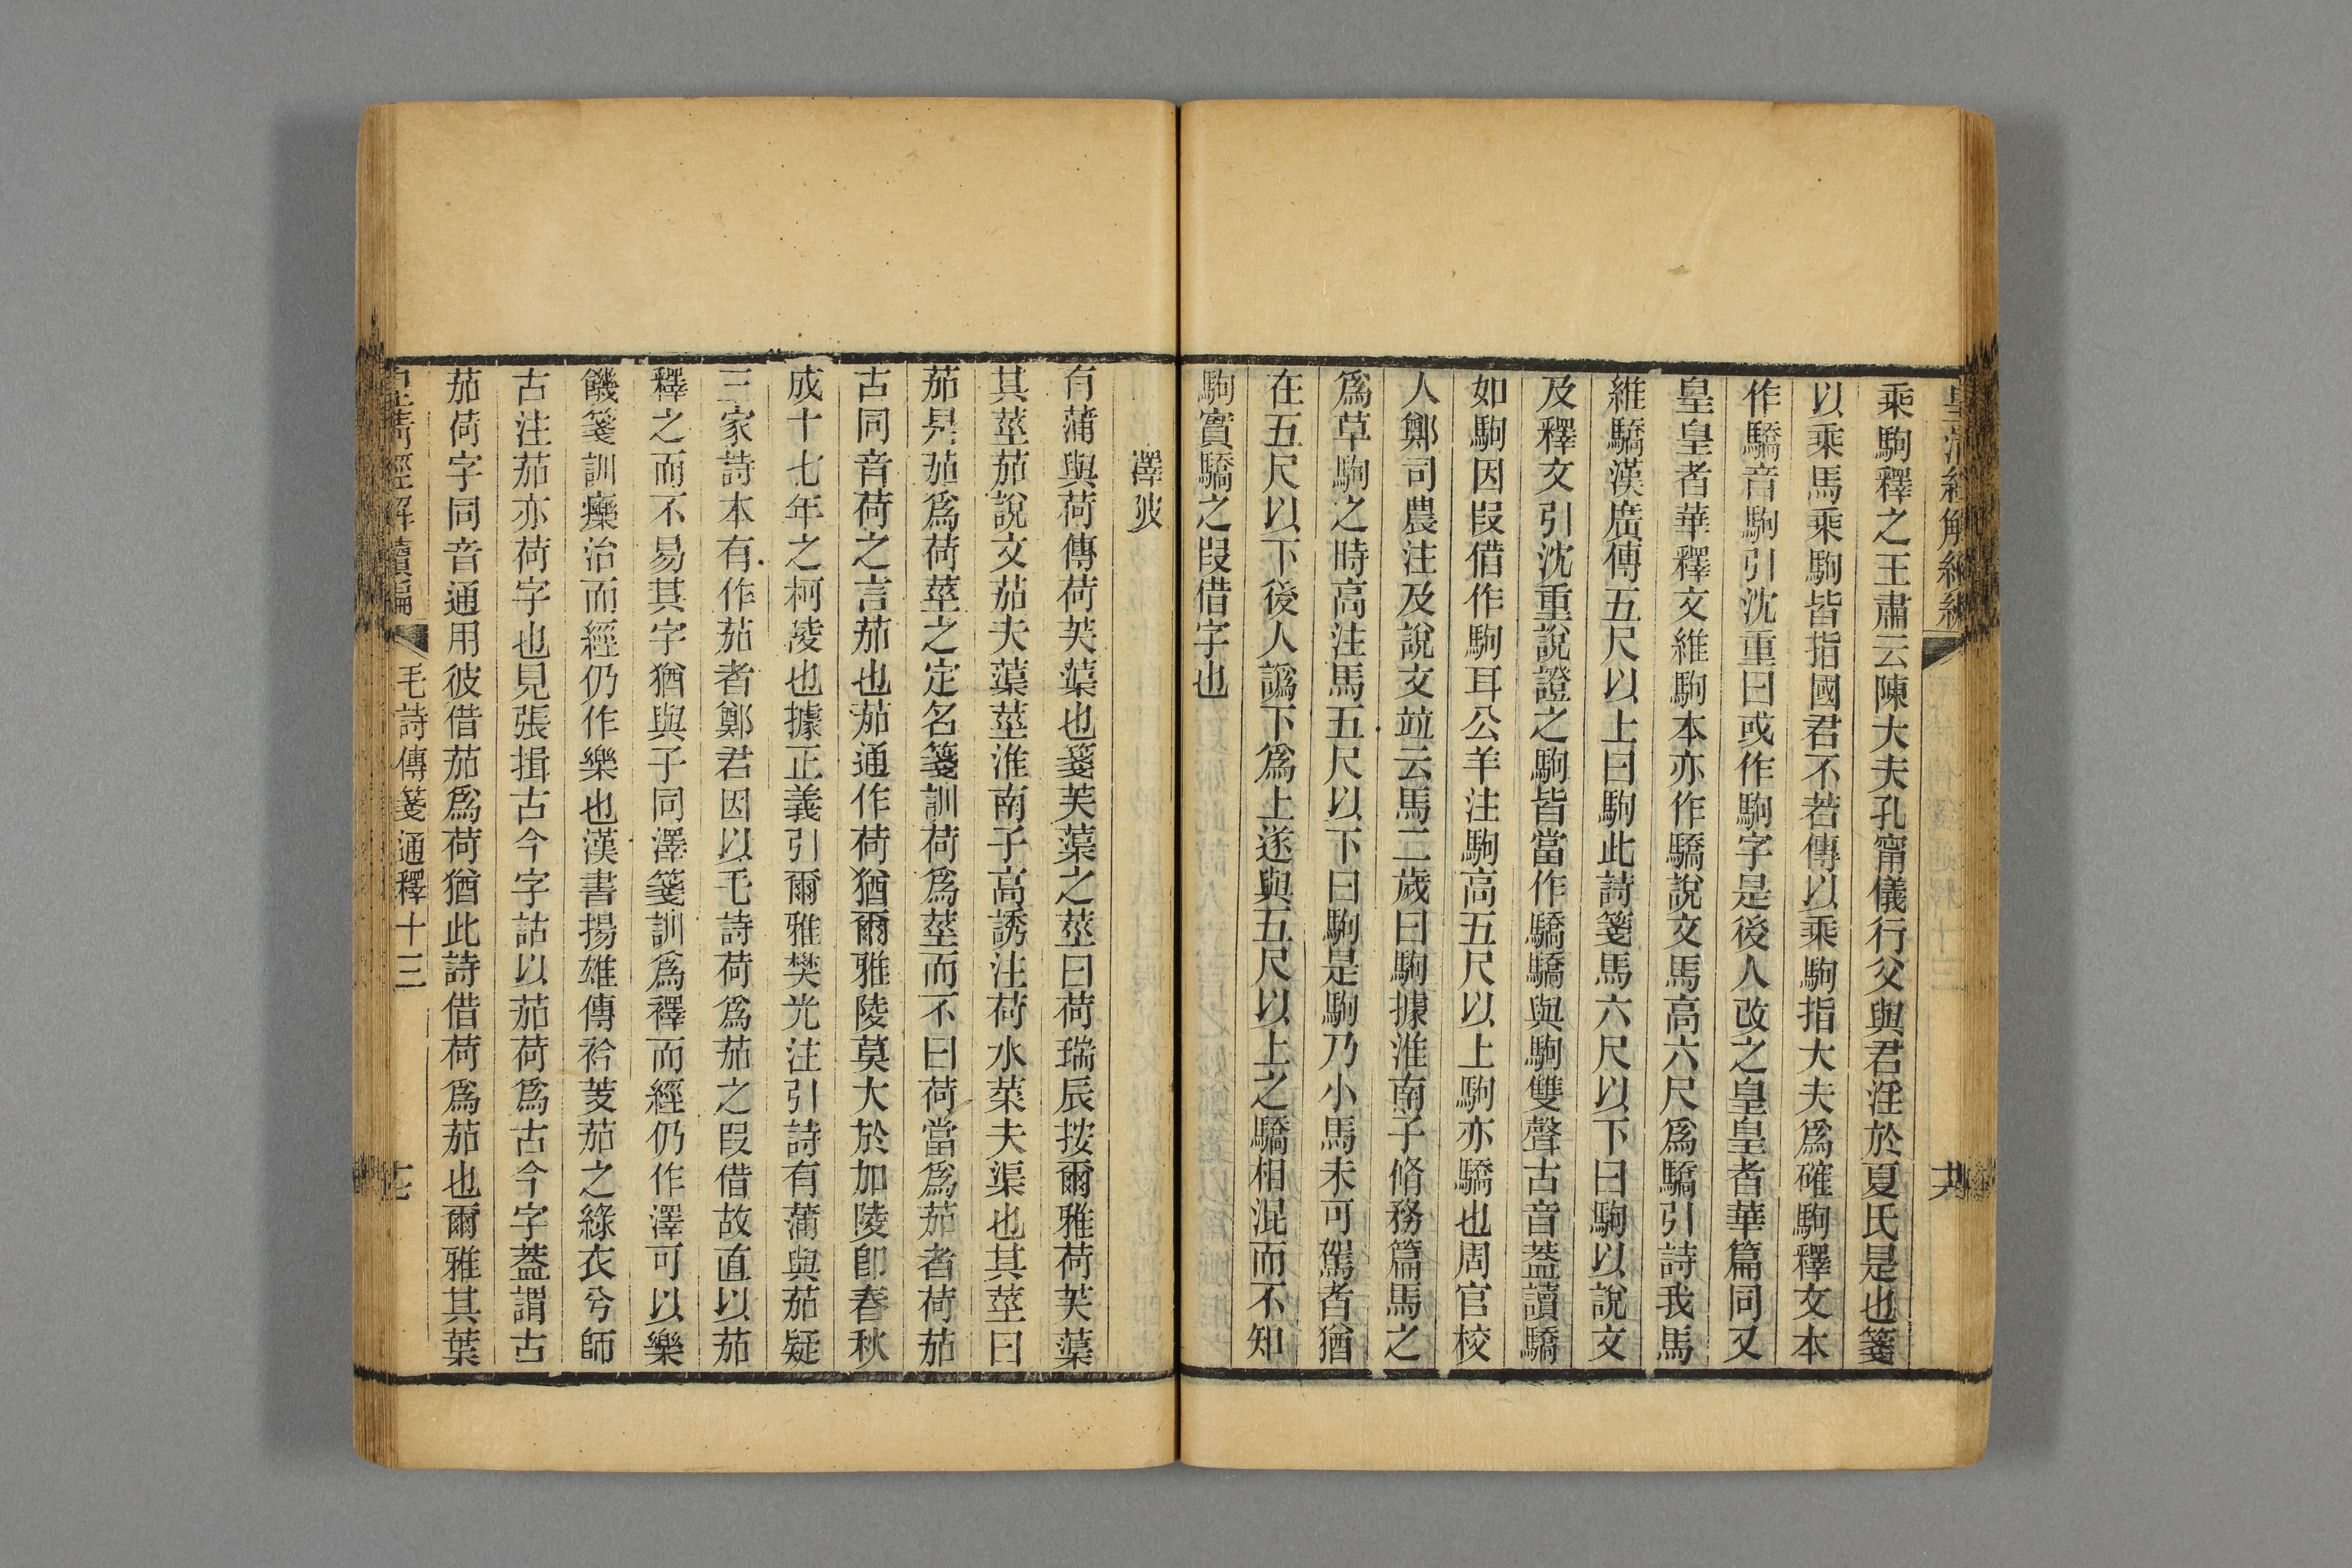 乘駒釋之王肅云陳大夫孔甯儀行父與君淫於夏氏是也箋
以乘馬乘駒皆指國君不若傳以乘駒指大夫爲確駒釋文本
作驕音駒引沈重曰或作駒字是後人改之皇皇者華篇同又
皇皇者華釋文維駒本亦作驕說文馬高六尺爲驕引詩我馬
維驕漢廣傳五尺以上曰駒此詩箋馬六尺以下曰駒以說文
及釋文引沈重說證之駒皆當作驕驕與駒雙聲古音葢讀驕
如駒因叚借作駒耳公羊注駒高五尺以上駒亦驕也周官校
人鄭司農注及說文竝云馬二歲曰駒據淮南子脩務篇馬之
爲草駒之時高注馬五尺以下曰駒是駒乃小馬未可駕者猶
在五尺以下後人譌下爲上遂與五尺以上之驕相混而不知
駒實驕之叚借字也
澤陂
有蒲與荷傳荷芙蕖也箋芙蕖之莖曰荷瑞辰按爾雅荷芙蕖
其莖茄說文茄夫蕖莖淮南子高誘注荷水菜夫渠也其莖曰
茄是茄爲荷莖之定名箋訓荷爲莖而不曰荷當爲茄者荷茄
古同音荷之言茄也茄通作荷猶爾雅陵莫大於加陵卽春秋
成十七年之柯淩也據正義引爾雅樊光注引詩有蒲與茄疑
三家詩本有作茄者鄭君因以毛詩荷爲茄之叚借故直以茄
釋之而不易其字猶與子同澤箋訓爲襗而經仍作澤可以樂
饑箋訓𤻲治而經仍作樂也漢書揚雄傳衿芰茄之綠衣兮師
古注茄亦荷字也見張揖古今字詁以茄荷爲古今字葢謂古
茄荷字同音通用彼借茄爲荷猶此詩借荷爲茄也爾雅其葉
皇清經解續編 毛詩傳箋通釋十三